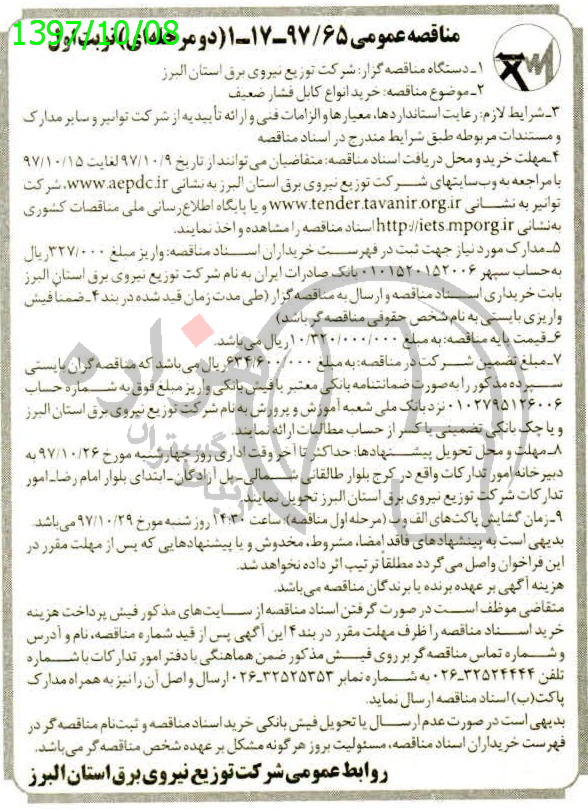 1397/10/08
مناقصه عمومی ۹۷/۶۵-۱۷-۱ (دو مرحله‌ای) نوبت اول
۱ـ دستگاه مناقصه گزار: شرکت توزیع نیروی برق استان البرز
۲ـ موضوع مناقصه: خرید انواع کابل فشار ضعیف
۳ـ شرایط لازم: رعایت استانداردها، معیارها و الزامات فنی و ارائه تأییدیه از شرکت توانیر و سایر مدارک
و مستندات مربوطه طبق شرایط مندرج در اسناد مناقصه
۴ـ مهلت خرید و محل دریافت اسناد مناقصه: متقاضیان می‌توانند از تاریخ ۹۷/۱۰/۹ لغایت ۹۷/۱۰/۱۵
با مراجعه به وب‌سایتهای شرکت توزیع نیروی برق استان البرز به نشانی www.aepdc.ir، شرکت
توانیر به نشانی www.tender.tavanir.org.ir و یا پایگاه اطلاع‌رسانی ملی مناقصات کشوری
به نشانی http://iets.mporg.ir اسناد مناقصه را مشاهده و اخذ نمایند.
۵ـ مدارک مورد نیاز جهت ثبت در فهرست خریداران اسناد مناقصه: واریز مبلغ ۳۲۷/۰۰۰ ریال
به حساب سپهر ۰۱۰۱۵۲۰۱۵۲۰۰۶ بانک صادرات ایران به نام شرکت توزیع نیروی برق استان البرز
بابت خریداری اسناد مناقصه و ارسال به مناقصه گزار (طی مدت زمان قید شده در بند ۴ـ ضمنا فیش
واریزی بایستی به نام شخص حقوقی مناقصه گر باشد)
۶ـ قیمت پایه مناقصه: به مبلغ ۱۰/۳۲۰/۰۰۰/۰۰۰ ریال می‌باشد.
۷ـ مبلغ تضمین شرکت در مناقصه: به مبلغ ۶۳۴/۶۰۰/۰۰۰ ریال می‌باشد که مناقصه گران بایستی
سپرده مذکور را به صورت ضمانتنامه بانکی معتبر یا فیش بانکی واریز مبلغ فوق به شماره حساب
۰۱۰۲۷۹۵۱۲۶۰۰۶ نزد بانک ملی شعبه آموزش و پرورش به نام شرکت توزیع نیروی برق استان البرز
و یا چک بانکی تضمینی یا کسر از حساب مطالبات ارائه نمایند.
۸ـ مهلت و محل تحویل پیشنهادها: حداکثر تا آخر وقت اداری روز چهارشنبه مورخ ۹۷/۱۰/۲۶ به
دبیرخانه امور تدارکات واقع در کرج بلوار طالقانی شمالی-پل آزادگان-ابتدای بلوار امام رضا-امور
تدارکات شرکت توزیع نیروی برق استان البرز تحویل نمایند.
۹ـ زمان گشایش پاکت‌های الف و ب (مرحله اول مناقصه): ساعت ۱۴:۳۰ روز شنبه مورخ ۹۷/۱۰/۲۹ می‌باشد.
بدیهی است به پیشنهادهای فاقد امضا، مشروط، مخدوش و یا پیشنهادهایی که پس از مهلت مقرر در
این فراخوان واصل می‌گردد مطلقاً ترتیب اثر داده نخواهد شد.
هزینه آگهی بر عهده برنده یا برندگان مناقصه می‌باشد.
متقاضی موظف است در صورت گرفتن اسناد مناقصه از سایت‌های مذکور فیش پرداخت هزینه
خرید اسناد مناقصه را ظرف مهلت مقرر در بند ۴ این آگهی پس از قید شماره مناقصه، نام و آدرس
و شماره تماس مناقصه گر بر روی فیش مذکور ضمن هماهنگی با دفتر امور تدارکات با شماره
تلفن ۳۲۵۲۴۴۴۴-۰۲۶ به شماره نمابر ۳۲۵۲۵۳۵۳-۰۲۶ ارسال و اصل آن را نیز به همراه مدارک
پاکت (ب) اسناد مناقصه ارسال نماید.
بدیهی است در صورت عدم ارسال یا تحویل فیش بانکی خرید اسناد مناقصه و ثبت‌نام مناقصه گر در
فهرست خریداران اسناد مناقصه، مسئولیت بروز هر گونه مشکل بر عهده شخص مناقصه گر می‌باشد.
روابط عمومی شرکت توزیع نیروی برق استان البرز